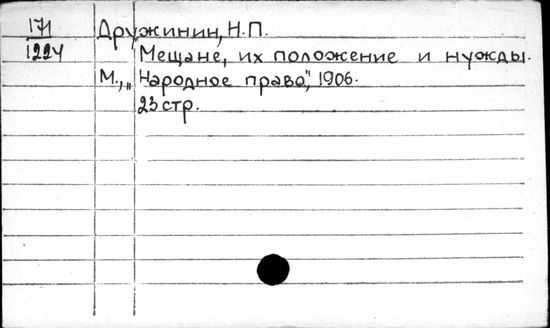 171 Дружинин, Н.П.
1224 Мещане, их положение и нужды.
М., „Народное право", 1906.
23 стр.